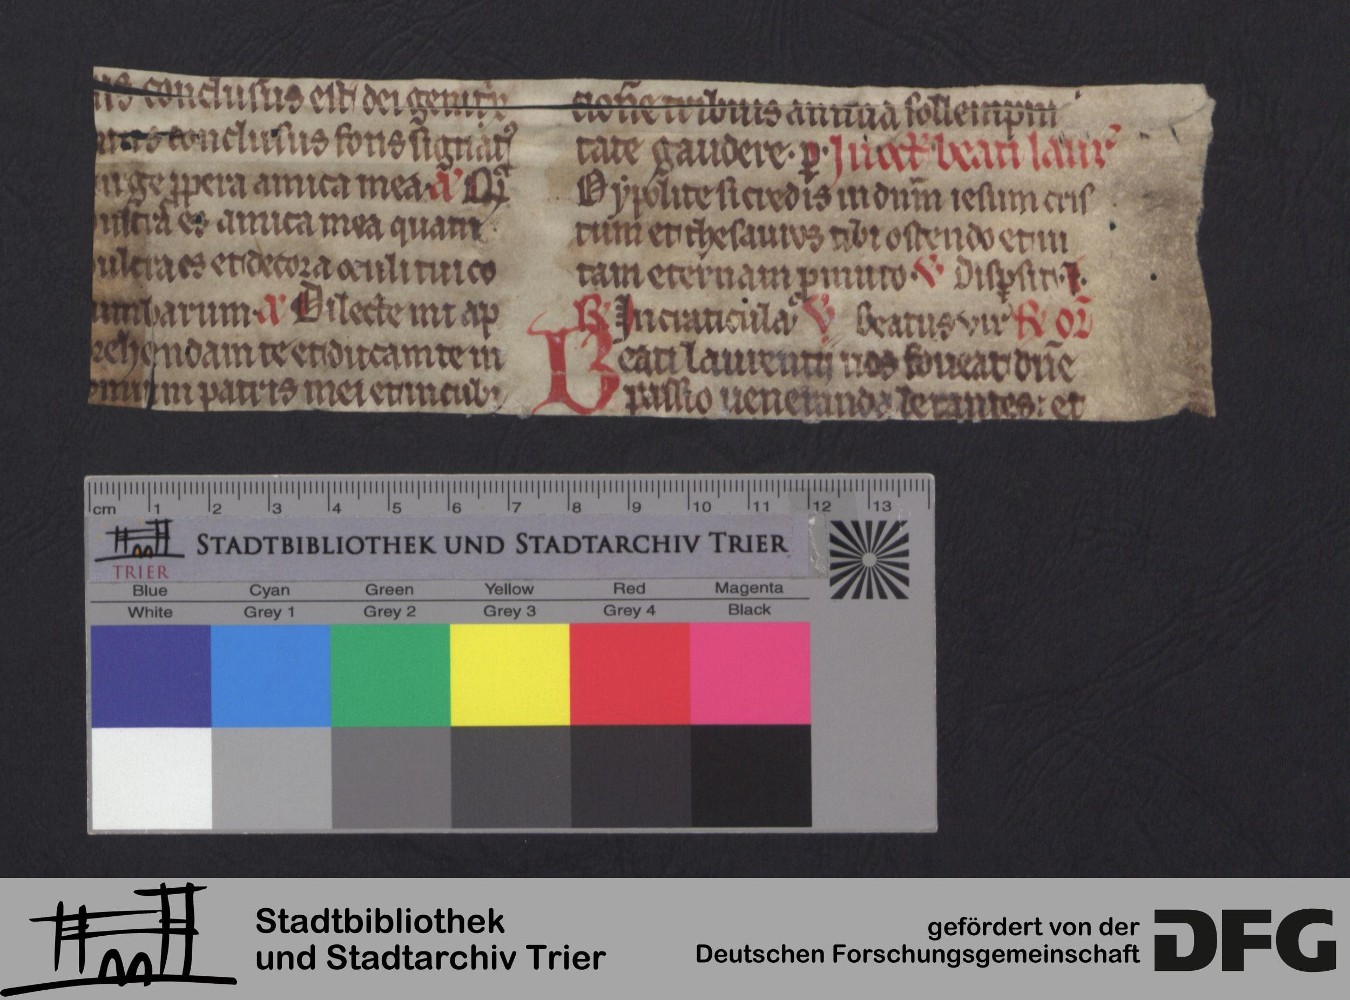 us conclusus est dei genitͥx
ortus conclusus fons signatꝰ
surge ꝓpera amica mea. a͞ Qᷓ
pulcra es amica mea quam
pulcra es et decora oculi tui co
lumbarum. a͞ Dilecte mi ap
rehendam te et ducam te in
domum patris mei et in cubi
cione tribuis annua sollempni
tate gaudere. ꝑ. Iuxͣ beati laurͥ
Ypolite si credis in dn̄m iesum cris
tum et thesauros tibi ostendo et ui
tam eternam ꝓmitto. V Disꝑsit.
R In craticula V beatus vir R or̄
Beati laurentij nos foueat dn̄e
passio ueneranda letantes: et
cm 1 2 3 4 5 6 7 8 9 10 11 12 13
TRIER
STADTBIBLIOTHEK UND STADTARCHIV TRIER
Blue Cyan Green Yellow Red Magenta
White Grey 1 Grey 2 Grey 3 Grey 4 Black
Stadtbibliothek
und Stadtarchiv Trier
gefördert von der
Deutschen Forschungsgemeinschaft
DFG